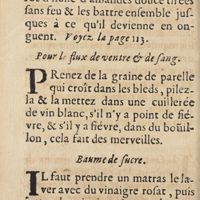 sans feu & les battre ensemble jus-
ques à ce qu'il devienne en on-
guent. Voyez la page 113.
Pour le flux de ventre & de sang.
PRenez de la graine de parelle
qui croît dans les bleds, pilez-
la & la mettez dans une cuillerée
de vin blanc, s'il n'y a point de fié-
vre, & s'il y a fiévre, dans du boüil-
lon, cela fait des merveilles.
Baume de sucre.
IL faut prendre un matras le la-
ver avec du vinaigre rosat, puis